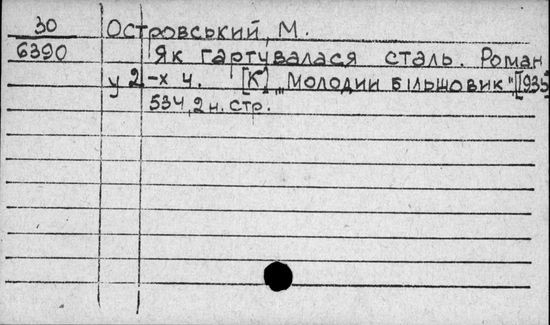 30 Островський, М.
6390 Як гартувалася сталь. Роман
у 2-х ч. [К] „Молодий більшовик" [1935]
534, 2 н. стр.